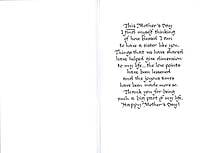 This Mother's Day
I find myself thinking
of how blessed I am
to have a sister like you.
Things that we have shared
have helped give dimension
to my life...the low points
have been lessened
and the joyous times
have been made more so.
Thank you for being
such a big part of my life.
Happy Mother's Day!